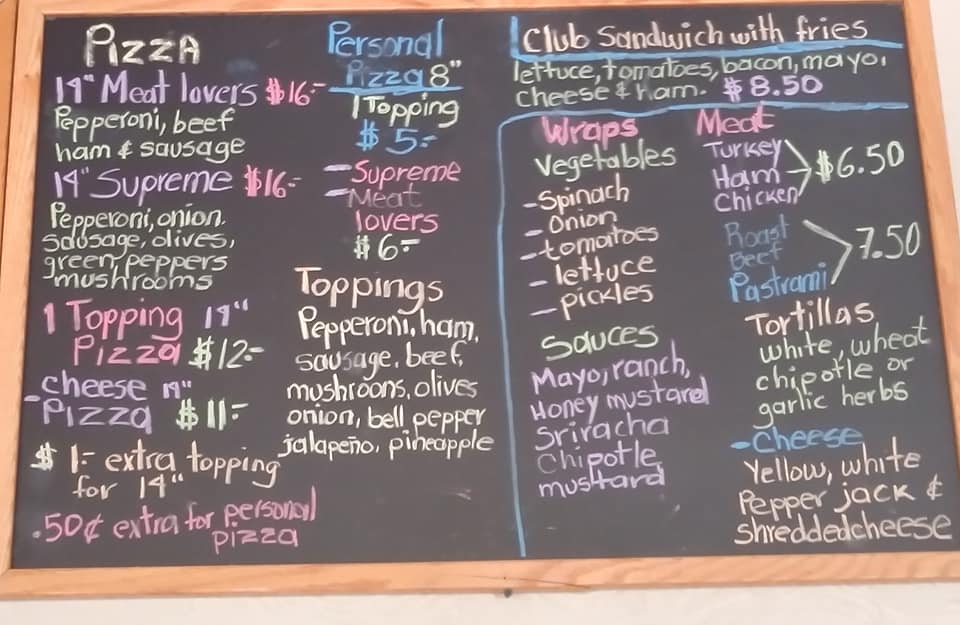 Pizza
14" Meat lovers $16-
Pepperoni, beef
ham & sausage
14" Supreme $16-
Pepperoni, onion,
sausage, olives,
green peppers
mushrooms
1 Topping 14"
Pizza $12-
-cheese 14"
Pizza $11-
$1- extra topping
for 14"
.50¢ extra for personal
pizza
Personal
Pizza 8"
1 Topping
$5-
-Supreme
-Meat
lovers
$6-
Toppings
Pepperoni, ham,
sausage, beef,
mushroons, olives
onion, bell pepper
jalapeño, pineapple
Club Sandwich with fries
lettuce, tomatoes, bacon, mayo,
cheese & ham. $8.50
Wraps
Vegetables
-Spinach
- Onion
-tomatoes
- lettuce
- pickles
Sauces
Mayo, ranch,
Honey mustard
Sriracha
Chipotle,
mustard
Meat
Turkey
Ham
Chicken
$6.50
Roast
Beef
Pastrami
7.50
Tortillas
white, wheat
chipotle or
garlic herbs
-Cheese
Yellow, white
Pepper jack &
shredded cheese